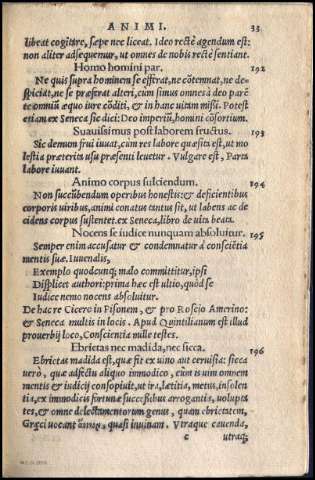 ANIMI. 33
libeat cogitare, sæpe nec liceat. Ideo rectè agendum est:
non aliter adsequemur, ut omnes de nobis rectè sentiant.
Homo homini par. 192
Ne quis supra hominem se efferat, ne cōtemnat, ne de-
spiciat, ne se præferat alteri, cum simus omnes à deo parē
te omniū æquo iure cōditi, & in hanc uitam missi. Potest
etiam ex Seneca sic dici: Deo imperiū, homini cōsortium.
Suauissimus post laborem fructus. 193
Sic demum frui iuuat, cum res labore quæsita est, ut mo
lestia præterita usu præsenti leuetur. Vulgare est, Parta
labore iuuant.
Animo corpus fulciendum. 194
Non succūbendum operibus honestis: & deficientibus
corporis uiribus, animi conatus enitendum sit, ut labens ac de
cidens corpus sustentet. ex Seneca, libro de uita beata.
Nocens se iudice nunquam absoluitur. 195
Semper enim accusatur & condemnatur à consciētia
mentis suæ. Iuuenalis,
Exemplo quodcunque malo committitur, ipsi
Displicet authori: prima hæc est ultio, quòd se
Iudice nemo nocens absoluitur.
De hac re Cicero in Pisonem, & pro Roscio Amerino:
& Seneca multis in locis. Apud Quintilianum est illud
prouerbij loco, Conscientia mille testes.
Ebrietas nec madida, nec sicca. 196
Ebrietas madida est, quæ fit ex uino aut ceruisia: sicca
uerò, quæ adfectu aliquo immodico, cùm is uim omnem
mentis & iudicij consopiuit, ut ira, lætitia, metus, insolen
tia, ex immodicis fortunæ successibus arrogantis, uolupta
tes, & omne delectamentorum genus, quam ebrietatem,
Græci uocant quasi inuinam. Vtraque cauenda,
c utraq;